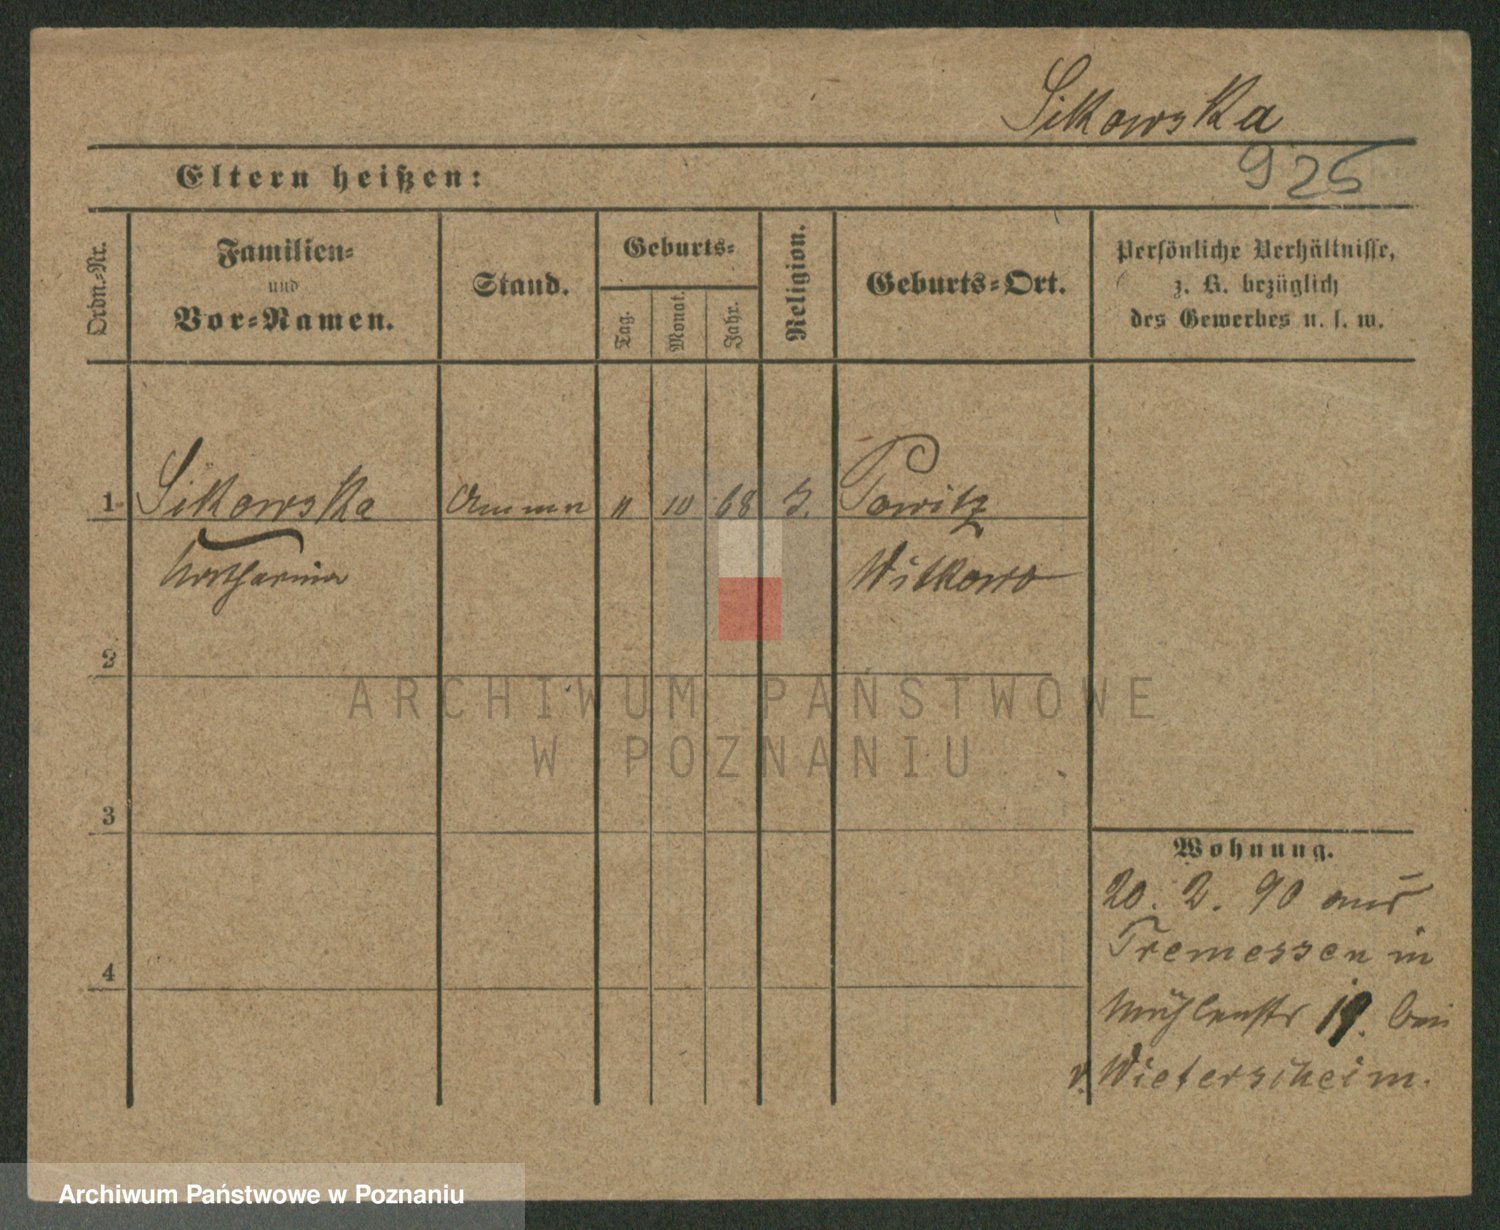 Sikowska
925
Eltern heißen:
Ordn.-Nr.
Familien-
und
Vor-Namen.
Stand.
Geburts-
Tag.
Monat.
Jahr.
Religion.
Geburts-Ort.
Persönliche Verhältnisse,
z. B. bezüglich
des Gewerbes u. s. w.
1 Sikowska Amme 11 10 68 Powitz
Katharina Witkowo
2
ARCHIWUM PAŃSTWOWE
W POZNANIU
3
Wohnung.
20. 2. 90 aus
Tremessen in
4
Mühlenstr 19. bei
v. Wietersheim.
Archiwum Państwowe w Poznaniu